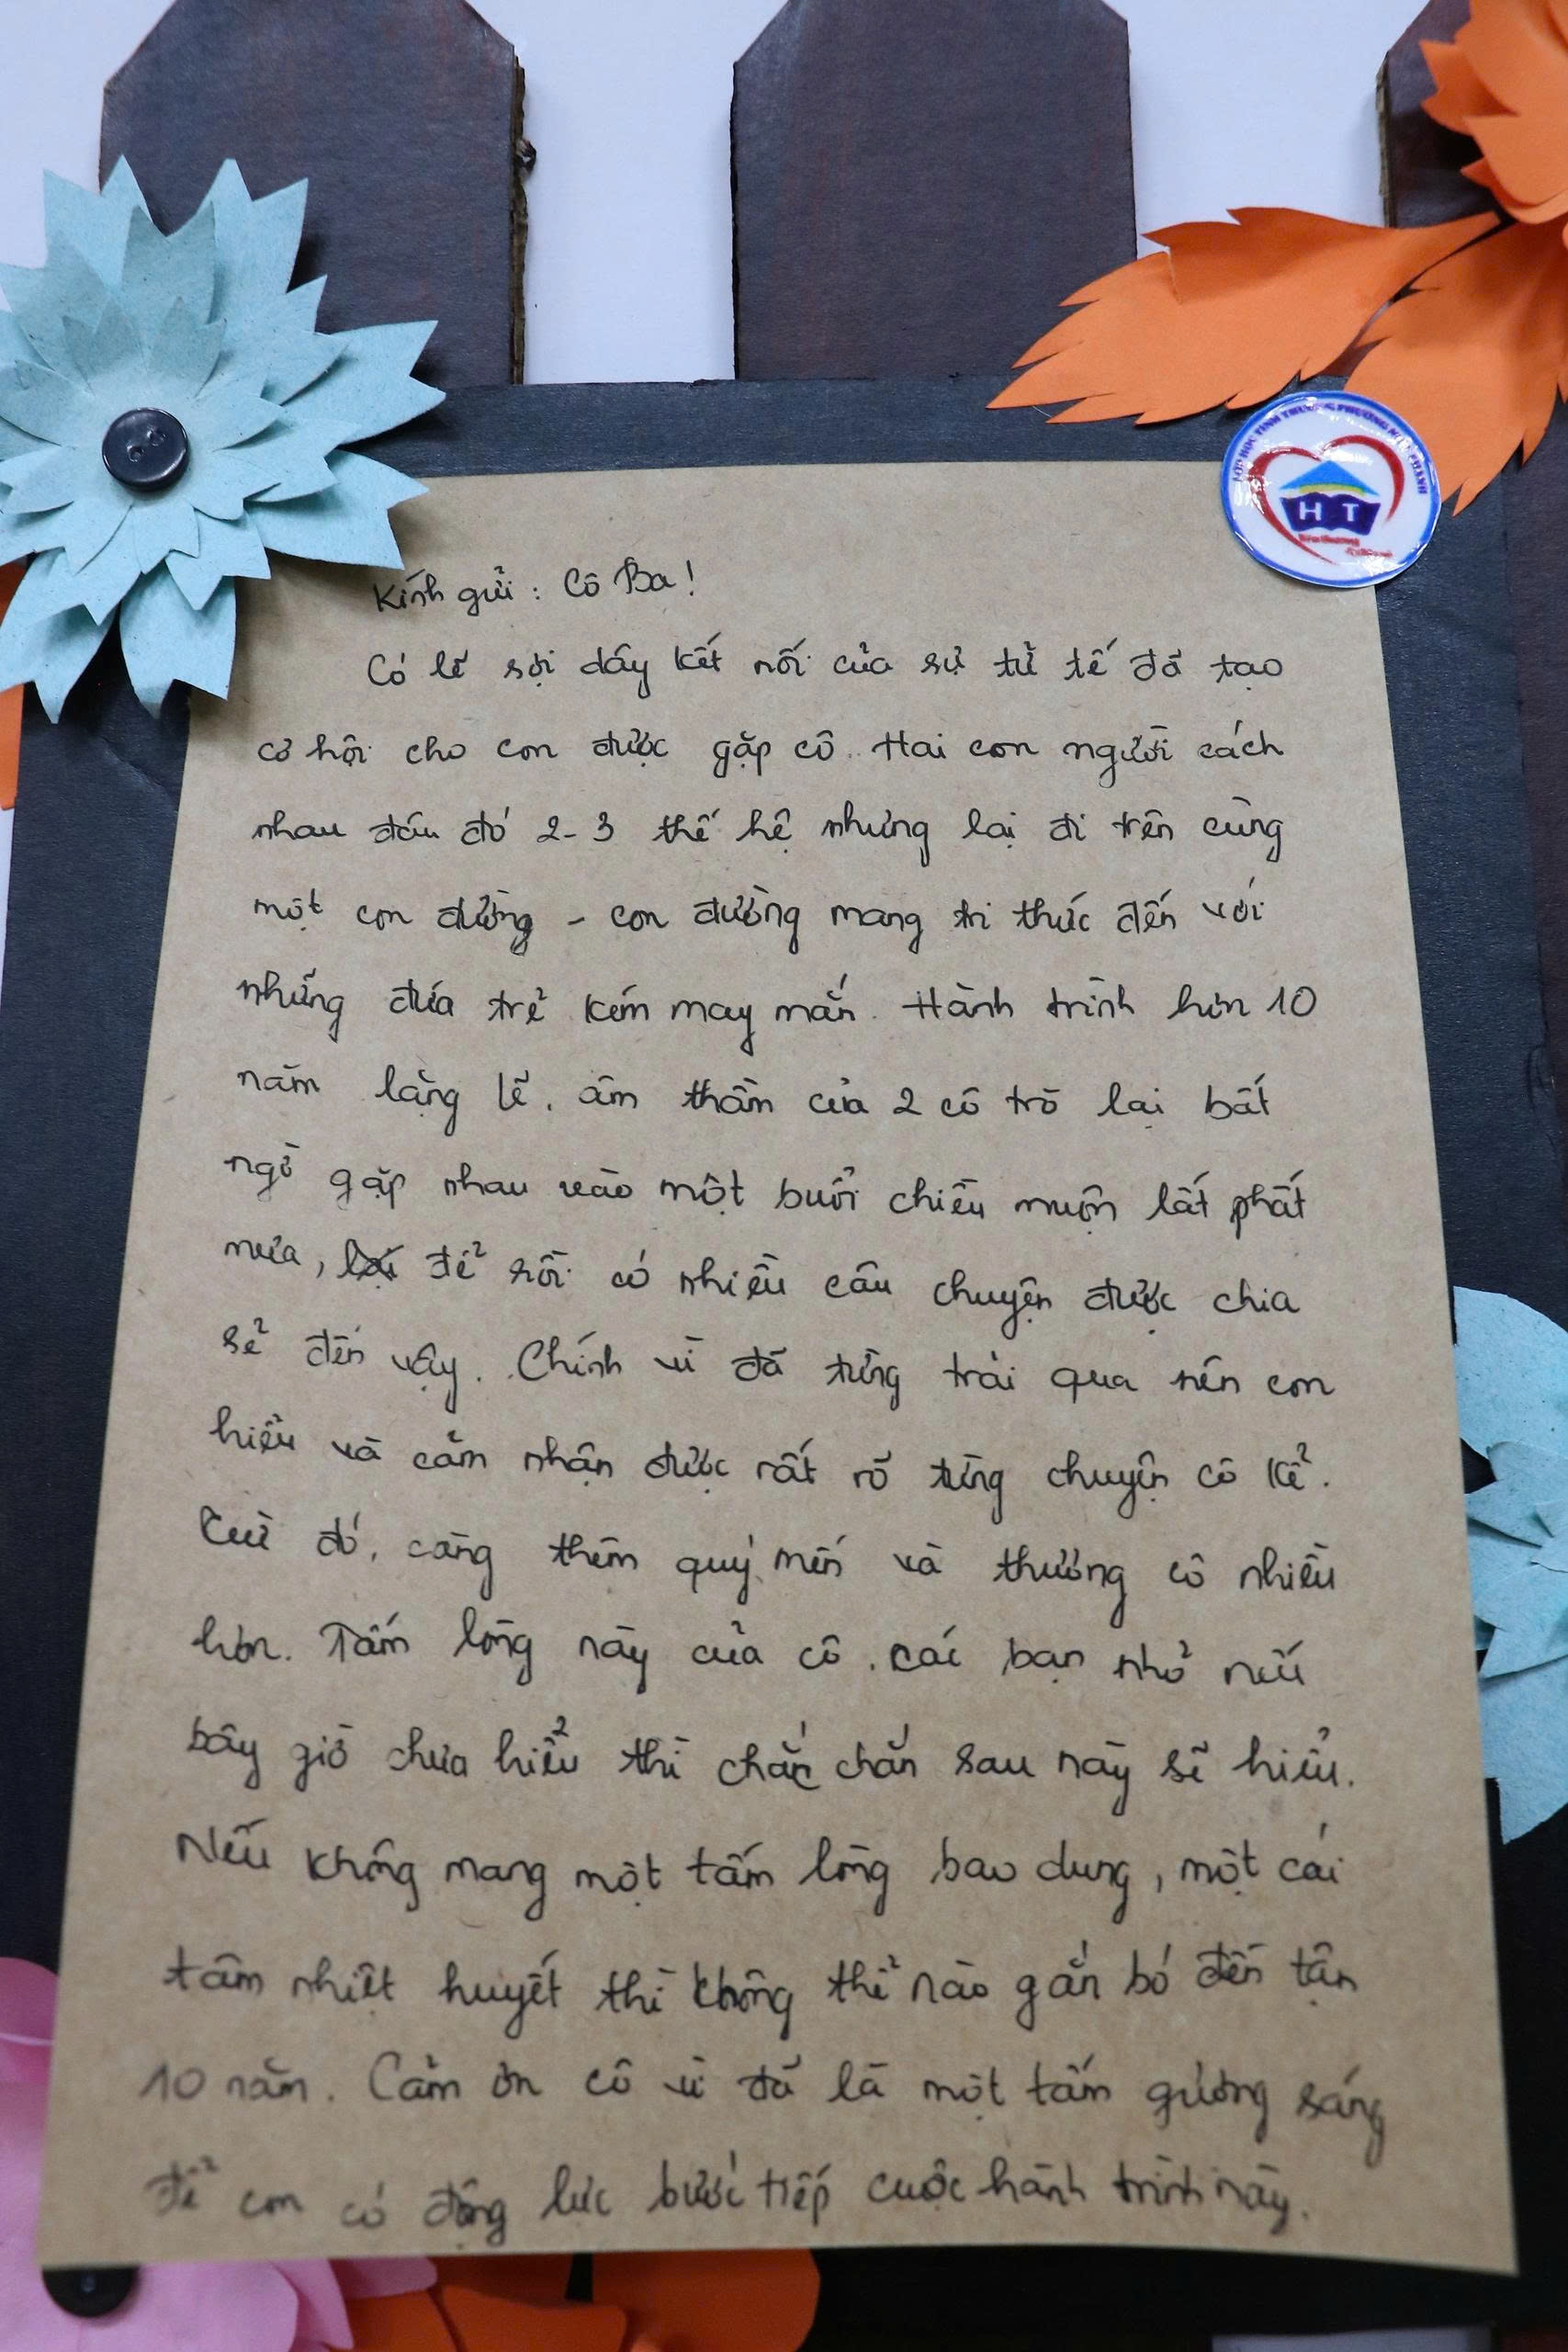 LỚP HỌC TÌNH THƯƠNG PHƯỜNG
H T
Kính gửi : Cô Ba !
Có lẽ sợi dây kết nối của sự tử tế đã tạo
cơ hội cho con được gặp cô. Hai con người cách
nhau đâu đó 2-3 thế hệ nhưng lại đi trên cùng
một con đường - con đường mang tri thức đến với
những đứa trẻ kém may mắn. Hành trình hơn 10
năm lặng lẽ, âm thầm của 2 cô trò lại bất
ngờ gặp nhau vào một buổi chiều muộn lất phất
mưa, để rồi có nhiều câu chuyện được chia
sẻ đến vậy. Chính vì đã từng trải qua nên con
hiểu và cảm nhận được rất rõ từng chuyện cô kể.
Từ đó, càng thêm quý mến và thương cô nhiều
hơn. Tấm lòng này của cô, các bạn nhỏ nếu
bây giờ chưa hiểu thì chắc chắn sau này sẽ hiểu.
Nếu không mang một tấm lòng bao dung, một cái
tâm nhiệt huyết thì không thể nào gắn bó đến tận
10 năm. Cảm ơn cô vì đã là một tấm gương sáng
để con có động lực bước tiếp cuộc hành trình này.